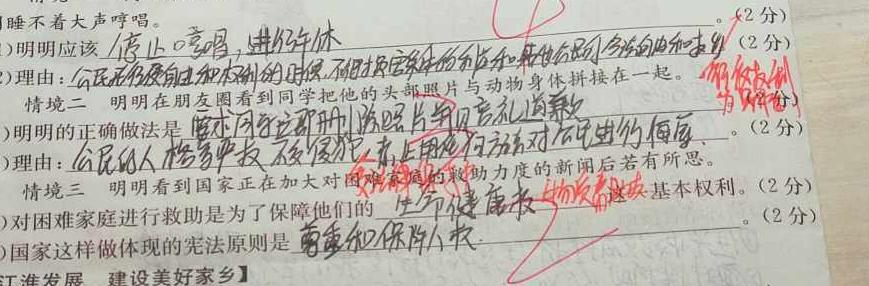 睡不着大声哼唱。
。(2分)
)明明应该 停止哼唱,进行午休 (2分)
)理由:公民在行使自由和权利的时候,不得损害集体的利益和其他公民的合法的自由和权利
情境二 明明在朋友圈看到同学把他的头部照片与动物身体拼接在一起。
)明明的正确做法是 要求同学立即删除照片并赔礼道歉 。(2分)
)理由:公民的人格尊严权不受侵犯,禁止用任何方法对公民进行侮辱 。(2分)
情境三 明明看到国家正在加大对困难家庭的救助力度的新闻后若有所思。
)对困难家庭进行救助是为了保障他们的 生命健康权 物质帮助权 基本权利。(2分)
)国家这样做体现的宪法原则是 尊重和保障人权 。(2分)
江淮发展 建设美好家乡】